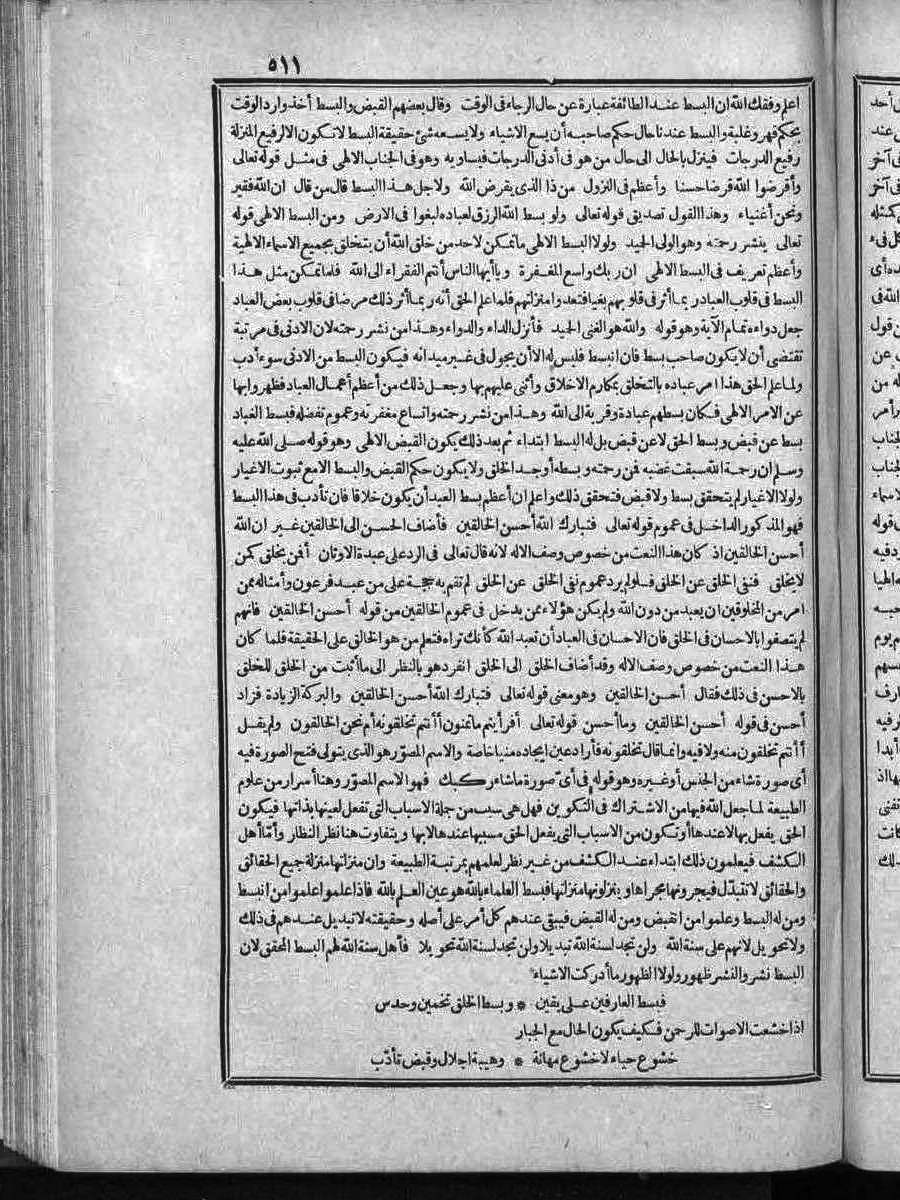 ٥١١
اعلم وفقك الله ان البسط عند الطائفة عبارة عن حال الرجاء فى الوقت وقال بعضهم القبض والبسط أخذ وارد الوقت
بحكم قهر وغلبة والبسط عندنا حال حكم صاحبه أن يسع الاشياء ولا يسعه شئ حقيقة البسط لا تكون الا لرفيع المنزلة
رفيع الدرجات فينزل بالحال الى حال من هو فى أدنى الدرجات فيساويه وهو فى الجناب الالهى فى مثل قوله تعالى
وأقرضوا الله قرضا حسنا وأعظم فى النزول من ذا الذى يقرض الله ولاجل هذا البسط قال من قال ان الله فقير
ونحن أغنياء وهذا القول تصديق قوله تعالى ولو بسط الله الرزق لعباده لبغوا فى الارض ومن البسط الالهى قوله
تعالى ينشر رحمته وهو الولى الحميد ولولا البسط الالهى ما تمكن لاحد من خلق الله أن يتخلق بجميع الاسماء الالهية
وأعظم تعريف فى البسط الالهى ان ربك واسع المغفرة ويا أيها الناس أنتم الفقراء الى الله فلما تمكن مثل هذا
البسط فى قلوب العباد ربما أثر فى قلوبهم بغيا فتعدوا منزلتهم فلما علم الحق أنه ربما أثر ذلك مرضا فى قلوب بعض العباد
جعل دواءه تمام الآية وهو قوله والله هو الغنى الحميد فأنزل الداء والدواء وهذا من نشر رحمته لان الادنى فى مرتبة
تقتضى أن لا يكون صاحب بسط فان انبسط فليس له الا أن يجول فى غير ميدانه فيكون البسط من الادنى سوء أدب
ولما علم الحق هذا امر عباده بالتخلق بمكارم الاخلاق وأثنى عليهم بها وجعل ذلك من أعظم أعمال العباد فظهروا بها
عن الامر الالهى فكان بسطهم عبادة وقربة الى الله وهذا من نشر رحمته واتساع مغفرته وعموم تفضله فبسط العباد
بسط عن قبض وبسط الحق لا عن قبض بل له البسط ابتداء ثم بعد ذلك يكون القبض الالهى وهو قوله صلى الله عليه
وسلم ان رحمة الله سبقت غضبه فمن رحمته وبسطه أوجد الخلق ولا يكون حكم القبض والبسط الا مع ثبوت الاغيار
ولولا الاغيار لم يتحقق بسط ولا قبض فتحقق ذلك واعلم ان أعظم بسط العبد أن يكون خلاقا فان تأدب فى هذا البسط
فهو المذكور الداخل فى عموم قوله تعالى فتبارك الله أحسن الخالقين فأضاف الحسن الى الخالقين غير ان الله
أحسن الخالقين اذ كان هذا النعت من خصوص وصف الاله لانه قال تعالى فى الرد على عبدة الاوثان أفمن يخلق كمن
لا يخلق فنفى الخلق عن الخلق فلو لم يرد عموم نفى الخلق عن الخلق لم تقم به حجة على من عبد فرعون وأمثاله ممن
امر من المخلوقين ان يعبد من دون الله ولم يكن هؤلاء ممن يدخل فى عموم الخالقين من قوله أحسن الخالقين فانهم
لم يتصفوا بالاحسان فى الخلق فان الاحسان فى العباد أن تعبد الله كأنك تراه فتعلم من هو الخالق على الحقيقة فلما كان
هذا النعت من خصوص وصف الاله وقد أضاف الخلق الى الخلق انفرد هو بالنظر الى ما أثبت من الخلق للخلق
بالاحسن فى ذلك فقال أحسن الخالقين وهو معنى قوله تعالى فتبارك الله أحسن الخالقين والبركة الزيادة فزاد
أحسن فى قوله أحسن الخالقين وما أحسن قوله تعالى أفرأيتم ما تمنون أأنتم تخلقونه أم نحن الخالقون ولم يقل
أأنتم تخلقون منه ولا فيه وانما قال تخلقونه فأراد عين ايجاده منيا خاصة والاسم المصوّر هو الذى يتولى فتح الصورة فيه
أى صورة شاء من الجنس أو غيره وهو قوله فى أىّ صورة ما شاء ركبك فهو الاسم المصوّر وهنا أسرار من علوم
الطبيعة لما جعل الله فيها من الاشتراك فى التكوين فهل هى سبب من جملة الاسباب التى تفعل لعينها بذاتها فيكون
الحق يفعل بها لا عندها أو تكون من الاسباب التى يفعل الحق مسببها عندها لا بها ويتفاوت هنا نظر النظار وأمّا أهل
الكشف فيعلمون ذلك ابتداء عند الكشف من غير نظر لعلمهم بمرتبة الطبيعة وان منزلتها منزلة جميع الحقائق
والحقائق لا تتبدّل فيجرونها مجراها وينزلونها منزلتها فبسط العلماء بالله هو عين العلم بالله فاذا علموا علموا من انبسط
ومن له البسط وعلموا من انقبض ومن له القبض فيبقى عندهم كل أمر على أصله وحقيقته لا تبديل عندهم فى ذلك
ولا تحويل لانهم على سنة الله ولن تجد لسنة الله تبديلا ولن تجد لسنة الله تحويلا فأهل سنة الله لهم البسط المحقق لان
البسط نشر والنشر ظهور ولولا الظهور ما أدركت الاشياء
فبسط العارفين على يقين * وبسط الخلق تخمين وحدس
اذا خشعت الاصوات للرحمن فكيف يكون الحال مع الجبار
خشوع حياء لا خشوع مهانة * وهيبة اجلال وقبض تأدّب